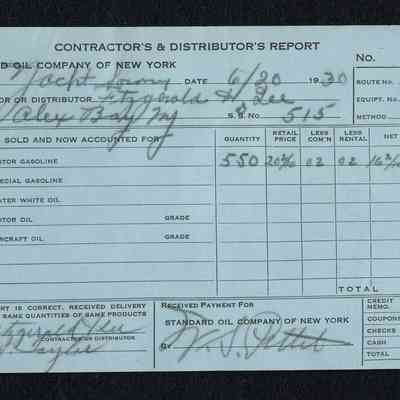 CONTRACTOR'S & DISTRIBUTOR'S REPORT
D OIL COMPANY OF NEW YORK No.
Yacht DATE 6/20 1930 ROUTE No.
OR OR DISTRIBUTOR Fitzgerald & Lee EQUIPT. No.
Alex Bay Ny S. S. No 515 METHOD
SOLD AND NOW ACCOUNTED FOR QUANTITY RETAIL PRICE LESS COM'N LESS RENTAL NET
TOR GASOLINE 550 02 02
ECIAL GASOLINE
ATER WHITE OIL
OTOR OIL GRADE
RCRAFT OIL GRADE
TOTAL
RT IS CORRECT, RECEIVED DELIVERY
SAME QUANTITIES OF SAME PRODUCTS
tzgerald & Lee
CONTRACTOR OR DISTRIBUTOR
Taylor
RECEIVED PAYMENT FOR
STANDARD OIL COMPANY OF NEW YORK
BY
CREDIT MEMO.
COUPONS
CHECKS
CASH
TOTAL